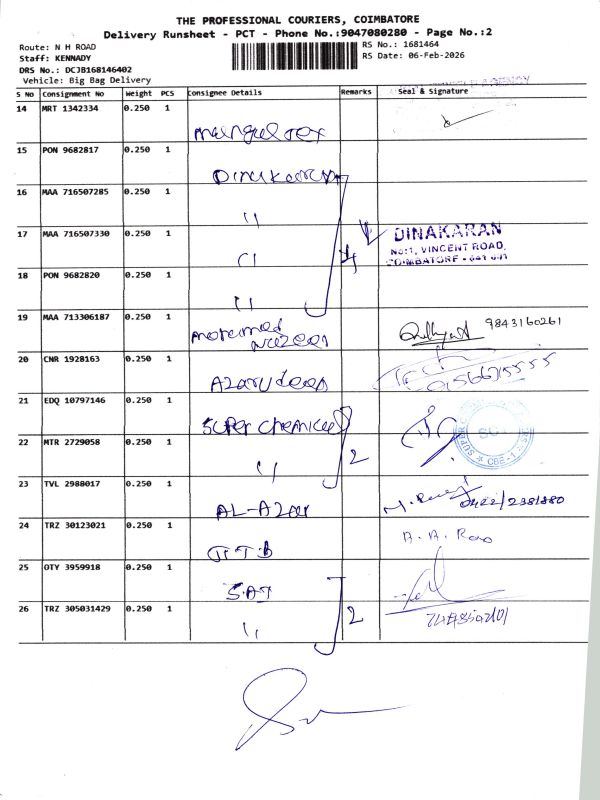 THE PROFESSIONAL COURIERS, COIMBATORE
Delivery Runsheet - PCT - Phone No.:9047080280 - Page No.:2
Route: N H ROAD
Staff: KENNADY
DRS No.: DCJB168146402
Vehicle: Big Bag Delivery
RS No.: 1681464
RS Date: 06-Feb-2026
S No Consignment No Weight PCS Consignee Details Remarks Seal & Signature
14 MRT 1342334 0.250 1
15 PON 9682817 0.250 1
Dinakaran
16 MAA 716507285 0.250 1
"
17 MAA 716507330 0.250 1
" 4 DINAKARAN
No:1, VINCENT ROAD,
COIMBATORE - 641 001
18 PON 9682820 0.250 1
"
19 MAA 713306187 0.250 1
9843160261
20 CNR 1928163 0.250 1
Azarudeen
21 EDQ 10797146 0.250 1
Super chemicel
CBE-1
22 MTR 2729058 0.250 1
" 2
23 TVL 2988017 0.250 1
AL-Azar 0422/2381880
24 TRZ 30123021 0.250 1
25 OTY 3959918 0.250 1
26 TRZ 305031429 0.250 1
" 2